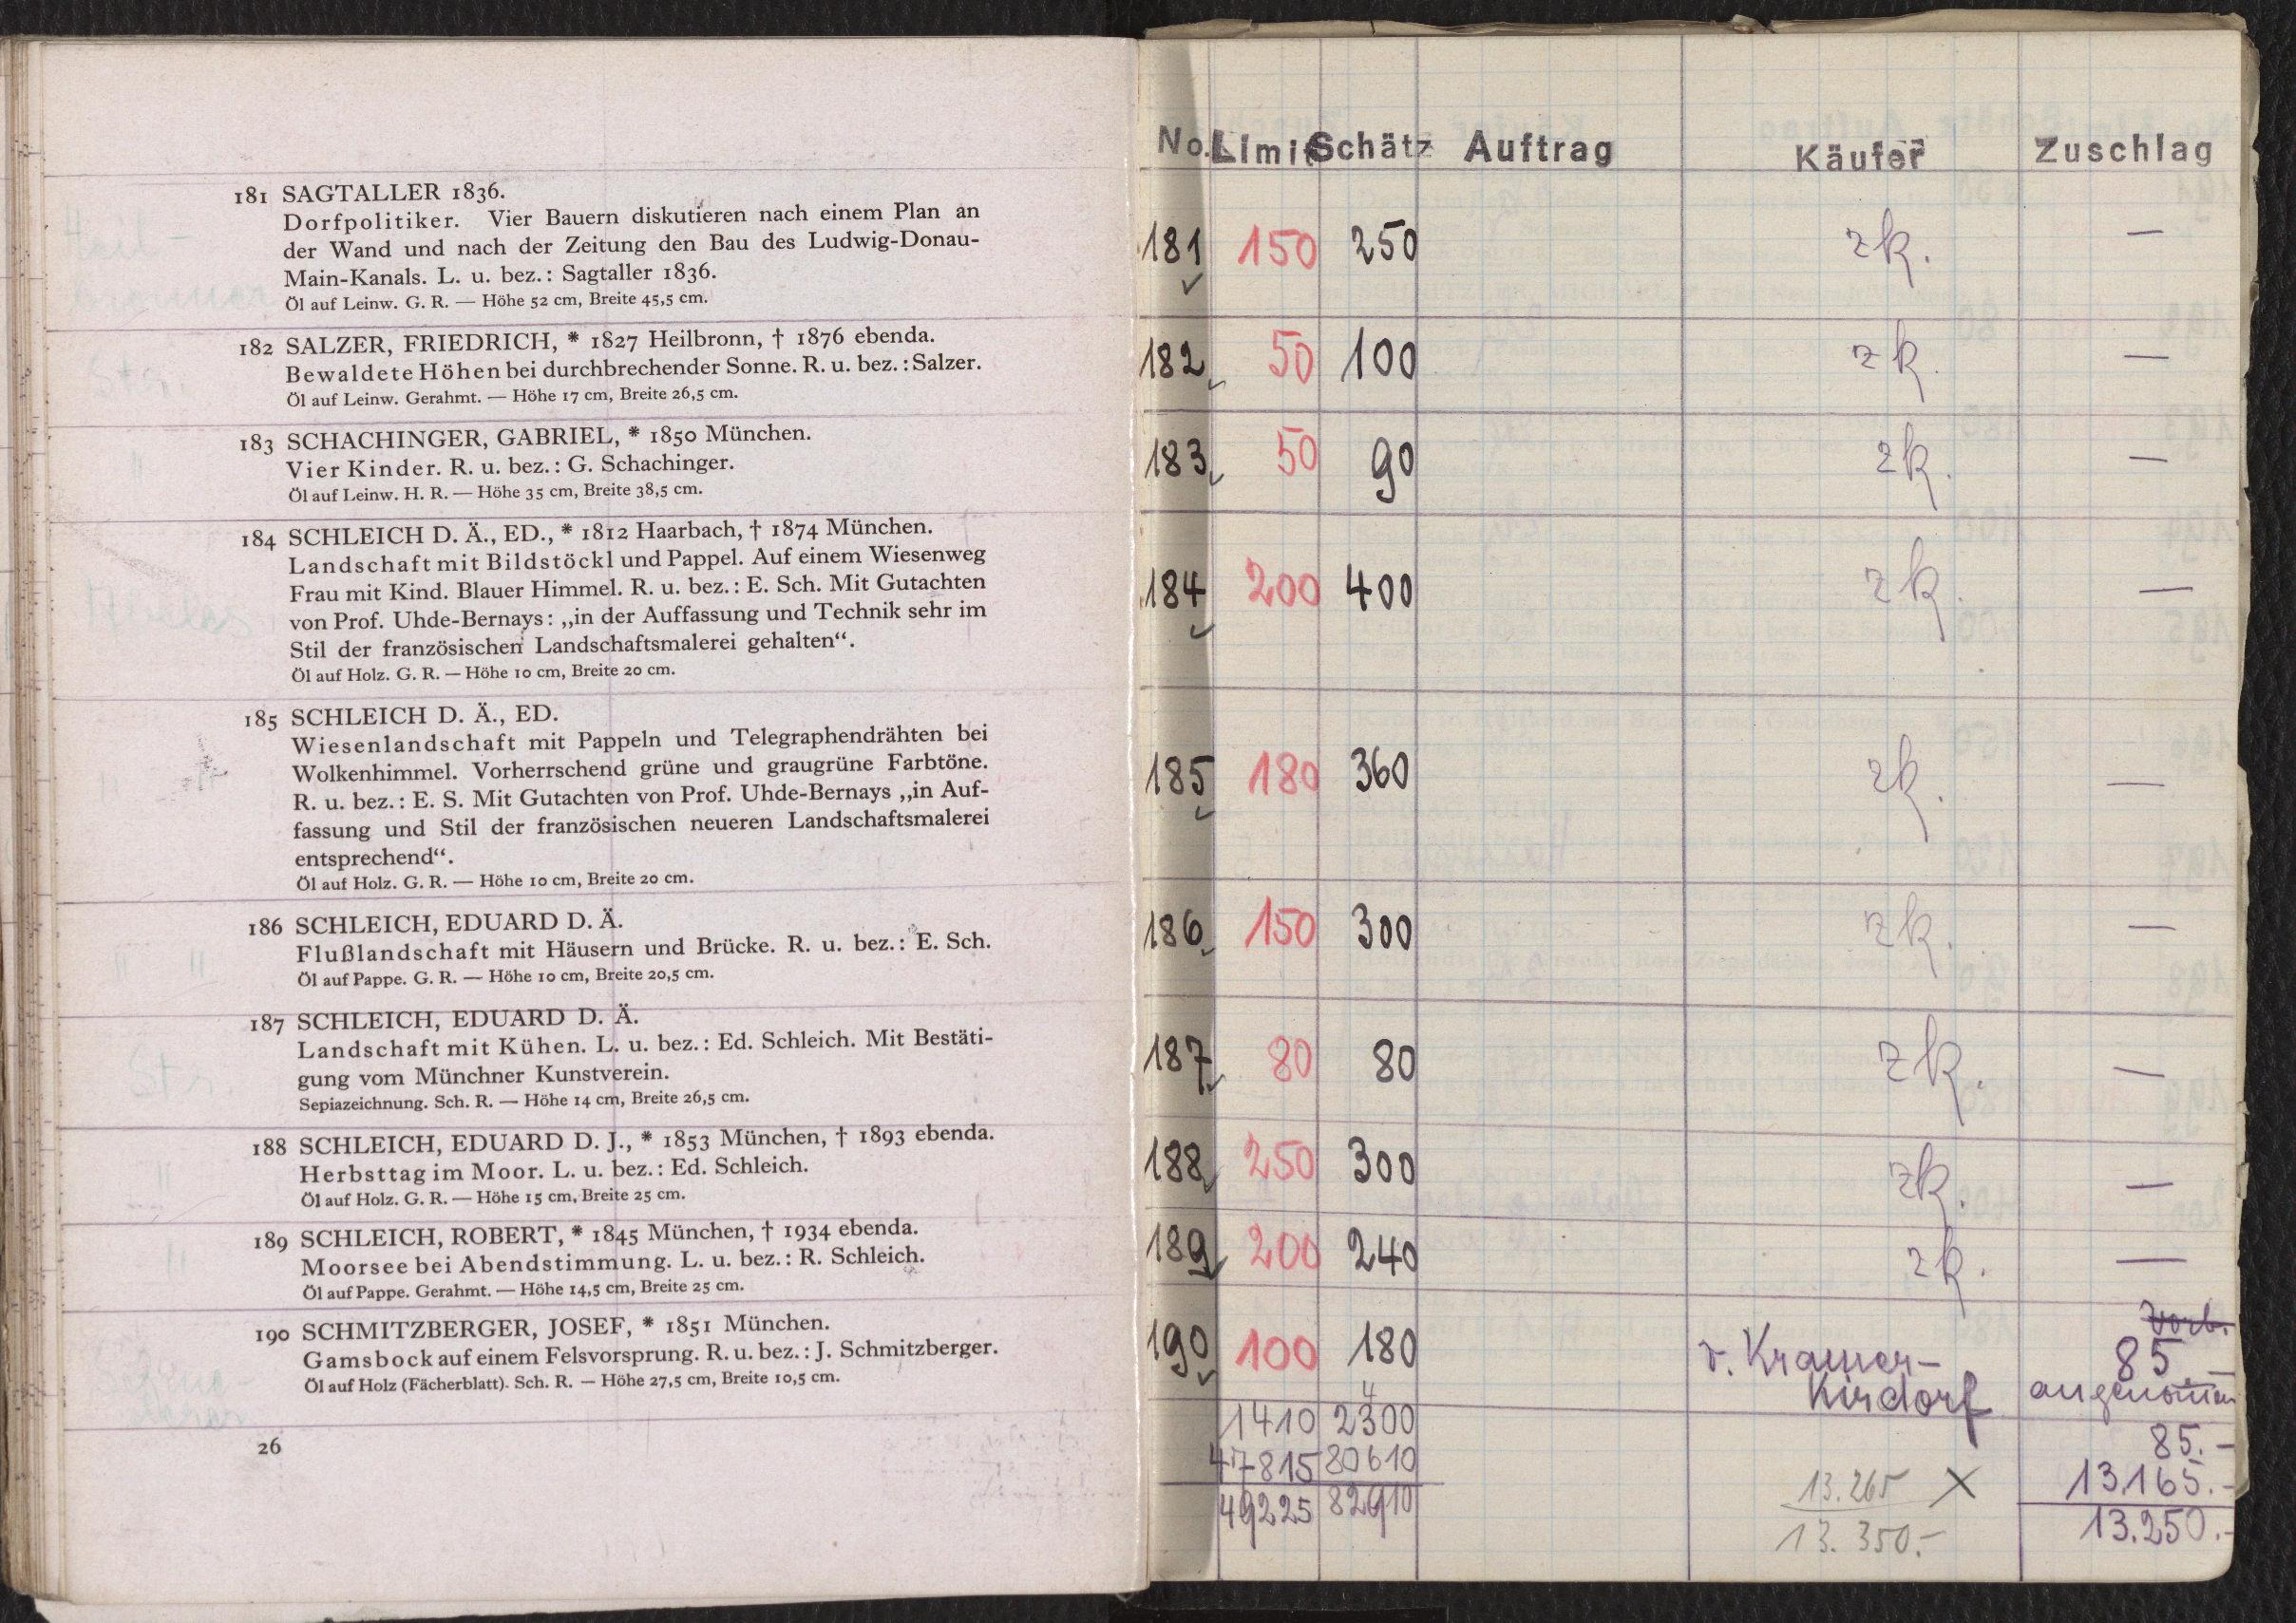 181 SAGTALLER 1836.
Dorfpolitiker. Vier Bauern diskutieren nach einem Plan an
der Wand und nach der Zeitung den Bau des Ludwig-Donau-
Main-Kanals. L. u. bez.: Sagtaller 1836.
Öl auf Leinw. G. R. — Höhe 52 cm, Breite 45,5 cm.
182 SALZER, FRIEDRICH, * 1827 Heilbronn, † 1876 ebenda.
Bewaldete Höhen bei durchbrechender Sonne. R. u. bez.: Salzer.
Öl auf Leinw. Gerahmt. — Höhe 17 cm, Breite 26,5 cm.
183 SCHACHINGER, GABRIEL, * 1850 München.
Vier Kinder. R. u. bez.: G. Schachinger.
Öl auf Leinw. H. R. — Höhe 35 cm, Breite 38,5 cm.
184 SCHLEICH D. Ä., ED., * 1812 Haarbach, † 1874 München.
Landschaft mit Bildstöckl und Pappel. Auf einem Wiesenweg
Frau mit Kind. Blauer Himmel. R. u. bez.: E. Sch. Mit Gutachten
von Prof. Uhde-Bernays: „in der Auffassung und Technik sehr im
Stil der französischen Landschaftsmalerei gehalten“.
Öl auf Holz. G. R. — Höhe 10 cm, Breite 20 cm.
185 SCHLEICH D. Ä., ED.
Wiesenlandschaft mit Pappeln und Telegraphendrähten bei
Wolkenhimmel. Vorherrschend grüne und graugrüne Farbtöne.
R. u. bez.: E. S. Mit Gutachten von Prof. Uhde-Bernays „in Auf-
fassung und Stil der französischen neueren Landschaftsmalerei
entsprechend“.
Öl auf Holz. G. R. — Höhe 10 cm, Breite 20 cm.
186 SCHLEICH, EDUARD D. Ä.
Flußlandschaft mit Häusern und Brücke. R. u. bez.: E. Sch.
Öl auf Pappe. G. R. — Höhe 10 cm, Breite 20,5 cm.
187 SCHLEICH, EDUARD D. Ä.
Landschaft mit Kühen. L. u. bez.: Ed. Schleich. Mit Bestäti-
gung vom Münchner Kunstverein.
Sepiazeichnung. Sch. R. — Höhe 14 cm, Breite 26,5 cm.
188 SCHLEICH, EDUARD D. J., * 1853 München, † 1893 ebenda.
Herbsttag im Moor. L. u. bez.: Ed. Schleich.
Öl auf Holz. G. R. — Höhe 15 cm, Breite 25 cm.
189 SCHLEICH, ROBERT, * 1845 München, † 1934 ebenda.
Moorsee bei Abendstimmung. L. u. bez.: R. Schleich.
Öl auf Pappe. Gerahmt. — Höhe 14,5 cm, Breite 25 cm.
190 SCHMITZBERGER, JOSEF, * 1851 München.
Gamsbock auf einem Felsvorsprung. R. u. bez.: J. Schmitzberger.
Öl auf Holz (Fächerblatt). Sch. R. — Höhe 27,5 cm, Breite 10,5 cm.
26
No. Limit Schätz Auftrag Käufer Zuschlag
181 150 250 zk. —
182 50 100 zk. —
183 50 90 zk. —
184 200 400 zk. —
185 180 360 zk. —
186 150 300 zk. —
187 80 80 zk. —
188 250 300 zk. —
189 200 240 zk. —
Vorb.
190 100 180 v. Kramer- 85 —
Kirdorf angenommen
1410 2300 85.-
47815 80610 13.265 X 13.165.-
49225 82910 13.350.- 13.250.-